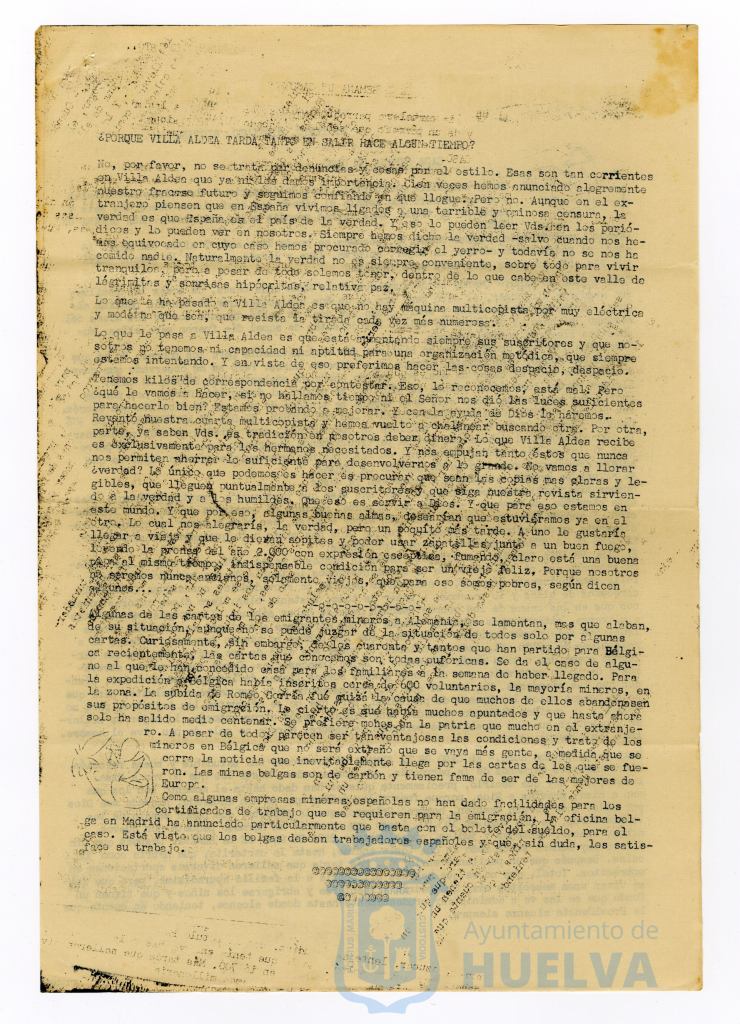 ¿PORQUE VILLA ALDEA TARDA TANTO EN SALIR HACE ALGUN TIEMPO?
No, por favor, no se trata por denuncias y cosas por el estilo. Esas son tan corrientes
en Villa Aldea que ya ni les damos importancia. Cien veces hemos anunciado alegremente
nuestro fracaso futuro y seguimos confiando en que llegue. Pero no. Aunque en el ex-
tranjero piensen que en España vivimos ligados a una terrible y ominosa censura, la
verdad es que España es el país de la verdad. Y eso lo pueden leer Vds. en los perió-
dicos y lo pueden ver en nosotros. Siempre hemos dicho la verdad -salvo cuando nos he-
mos equivocado en cuyo caso hemos procurado corregir el yerro- y todavía no se nos ha
comido nadie. Naturalmente la verdad no es siempre conveniente, sobre todo para vivir
tranquilos, pero a pesar de todo solemos tener, dentro de lo que cabe en este valle de
lágrimitas y sonrisas hipócritas, relativa paz.
Lo que le ha pasado a Villa Aldea es que no hay máquina multicopista por muy eléctrica
y moderna que sea, que resista la tirada cada vez más numerosa.
Lo que le pasa a Villa Aldea es que está aumentando siempre sus suscritores y que no-
sotros no tenemos ni capacidad ni aptitud para una organización metódica, que siempre
estamos intentando. Y en vista de eso preferimos hacer las cosas despacio, despacio.
Tenemos kilos de correspondencia por contestar. Eso, lo reconocemos, está mal. Pero
¿qué le vamos a hacer, si no hallamos tiempo ni el Señor nos dió las luces suficientes
para hacerlo bien? Estamos probando a mejorar. Y con la ayuda de Dios lo haremos.
Reventó nuestra cuarta multicopista y hemos vuelto a chalanear buscando otra. Por otra,
parte, ya saben Vds. es tradición en nosotros deber dinero. Lo que Villa Aldea recibe
es exclusivamente para los hermanos necesitados. Y nos empujan tanto éstos que nunca
nos permiten ahorrar lo suficiente para desenvolvernos a lo grande. No vamos a llorar
¿verdad? Lo único que podemos es hacer es procurar que sean las copias mas claras y le-
gibles, que lleguen puntualmente a los suscritores y que siga nuestra revista sirvien-
do a la verdad y a los humildes. Que eso es servir a Dios. Y que para eso estamos en
este mundo. Y que por eso, algunas buenas almas, desearían que estuviéramos ya en el
otro. Lo cual nos alegraría, la verdad, pero un poquito más tarde. A uno le gustaría
llegar a viejo y que le dieran sopitas y poder usar zapatillas junto a un buen fuego,
leyendo la prensa del año 2.000 con expresión escéptica, fumando, claro está una buena
pipa al mismo tiempo, indispensable condición para ser un viejo feliz. Porque nosotros
no seremos nunca ancianos, solamente viejos, que para eso somos pobres, según dicen
algunos...
-o-o-o-o-o-o-o-o-
Algunas de las cartas de los emigrantes mineros a Alemania, se lamentan, mas que alaban,
de su situación, aunque no se puede juzgar de la situación de todos solo por algunas
cartas. Curiosamente, sin embargo, de los cuarenta y tantos que han partido para Bélgi-
ca recientemente, las cartas que conocemos son todas eufóricas. Se da el caso de algu-
no al que le han concedido casa para los familiares a la semana de haber llegado. Para
la expedición a Bélgica había inscritos cerca de 600 voluntarios, la mayoría mineros, en
la zona. La subida de Romeo Correa fué quizá la causa de que muchos de ellos abandonasen
sus propósitos de emigración. Lo cierto es que había muchos apuntados y que hasta ahora
solo ha salido medio centenar. Se prefiere menos en la patria que mucho en el extranje-
ro. A pesar de todo, parecen ser tan ventajosas las condiciones y trato de los
mineros en Bélgica que no será extraño que se vaya más gente, a medida que se
corra la noticia que inevitablemente llega por las cartas de los que se fue-
ron. Las minas belgas son de carbón y tienen fama de ser de las mejores de
Europa.
Como algunas empresas mineras españolas no han dado facilidades para los
certificados de trabajo que se requieren para la emigración, la oficina bel-
ga en Madrid ha anunciado particularmente que basta con el bolete del sueldo, para el
caso. Está visto que los belgas desean trabajadores españoles y que, sin duda, les satis-
face su trabajo.
Ayuntamiento de
HUELVA